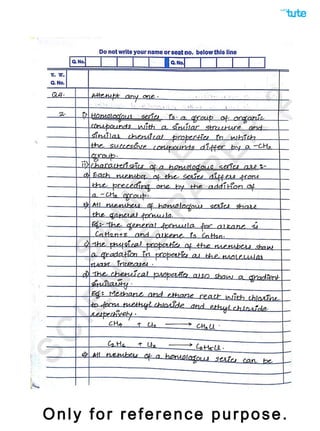 tute
Do not write your name or seat no. below this line
Q. No.
Q. No.
Q. No.
Q4.
Attempt any one.
2. i) Homologous series is a group of organic
compounds with a similar structure and
similar chemical properties in which
the successive compounds differ by a -CH₂
group.
ii) Characteristics of a homologous series are :-
a) Each member of the series differs from
the preceeding one by the addition of
a -CH₂ group.
b) All members of homologous series share
the general formula.
Eg:- The general formula for alkane is
CnH2n+2 and alkene is CnH2n.
c) The physical properties of the members show
a gradation in properties as the molecular
mass increases.
d) The chemical properties also show a gradient
similarity.
Eg: Methane and ethane react with chlorine
to form methyl chloride and ethyl chloride
respectively.
CH₄ + Cl₂ → CH₃Cl
C₂H₆ + Cl₂ → C₂H₅Cl
e) All members of a homologous series can be
Only for reference purpose.